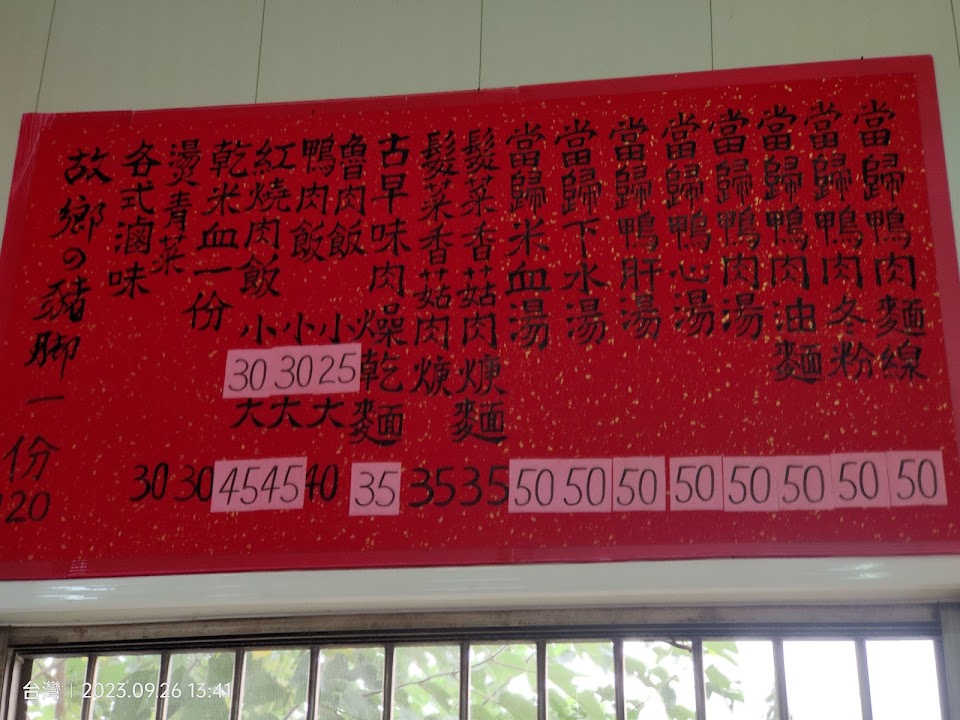 當歸鴨肉麵線 50
當歸鴨肉冬粉 50
當歸鴨肉油麵 50
當歸鴨肉湯 50
當歸鴨心湯 50
當歸鴨肝湯 50
當歸下水湯 50
當歸米血湯 50
髮菜香菇肉焿麵 35
髮菜香菇肉焿 35
古早味肉燥乾麵 35
魯肉飯 小 25 大 40
鴨肉飯 小 30 大 45
紅燒肉飯 小 30 大 45
乾米血一份 30
燙青菜 30
各式滷味
故鄉の豬脚一份 120
台灣 | 2023.09.26 13:41